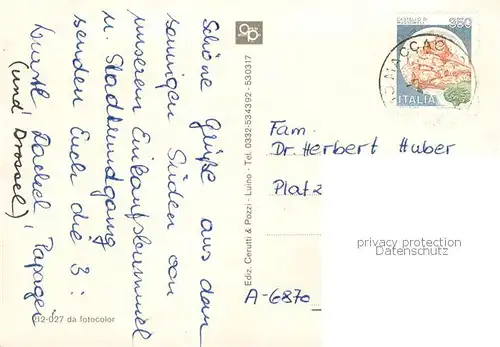 Schöne Grüße aus dem
sonnigen Süden von
unserem Einkaufsbummel
u. Stadtrundgang
senden Euch die 3:
Wurstl, Dackel, Papagei
(und Drossel)
212-027 da fotocolor
Ediz. Cerutti & Pozzi - Luino - Tel. 0332-534392 - 530317
350
ITALIA
MACCAG
Fam.
Dr Herbert Huber
Platz
privacy protection
Datenschutz
A-6870